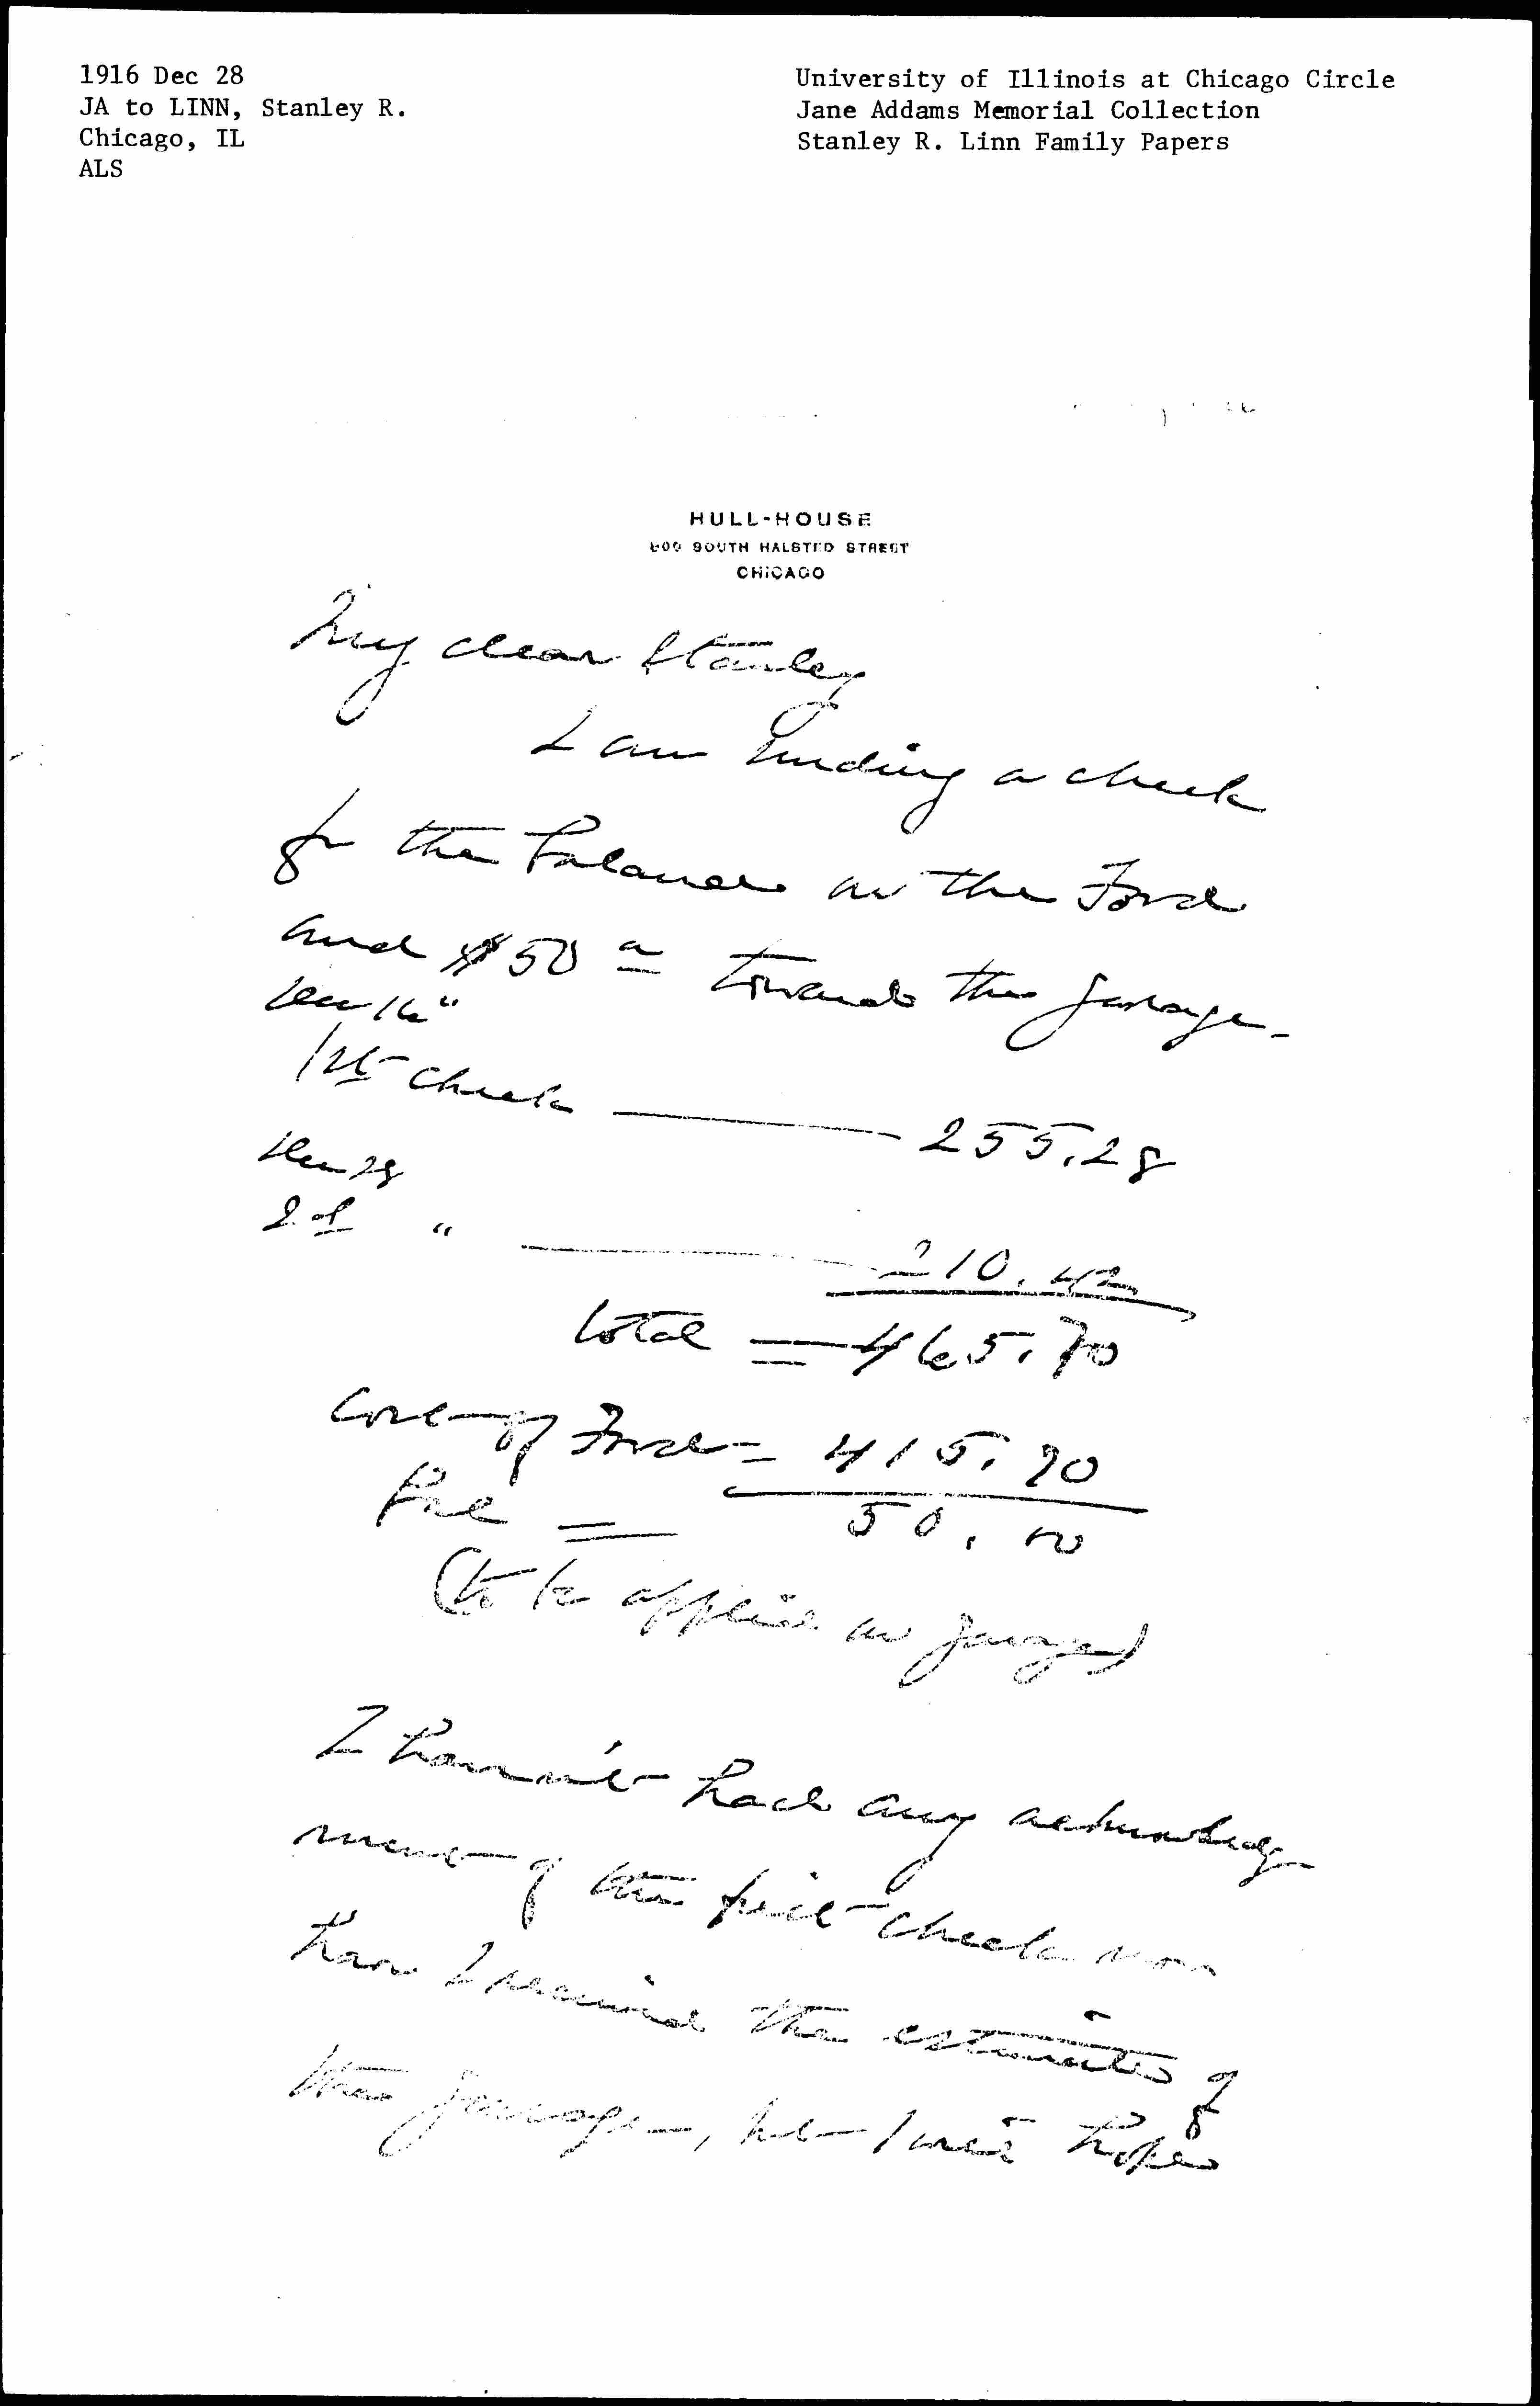 1916 Dec 28
JA to LINN, Stanley R.
Chicago, IL
ALS
University of Illinois at Chicago Circle
Jane Addams Memorial Collection
Stanley R. Linn Family Papers
HULL-HOUSE
800 SOUTH HALSTED STREET
CHICAGO
My dear Stanley
I am sending a check
for the balance on the Ford
and $50 towards the garage -
Dec 16"
1st check — 255.28
Dec 28
2d " — 210.42
total = 465.70
Cost of Ford = 415.70
Bal = 50.00
(to be applied on garage)
I haven't had any acknowledg
ment of the first check nor
have I received the estimates of
the garage, but I was hope